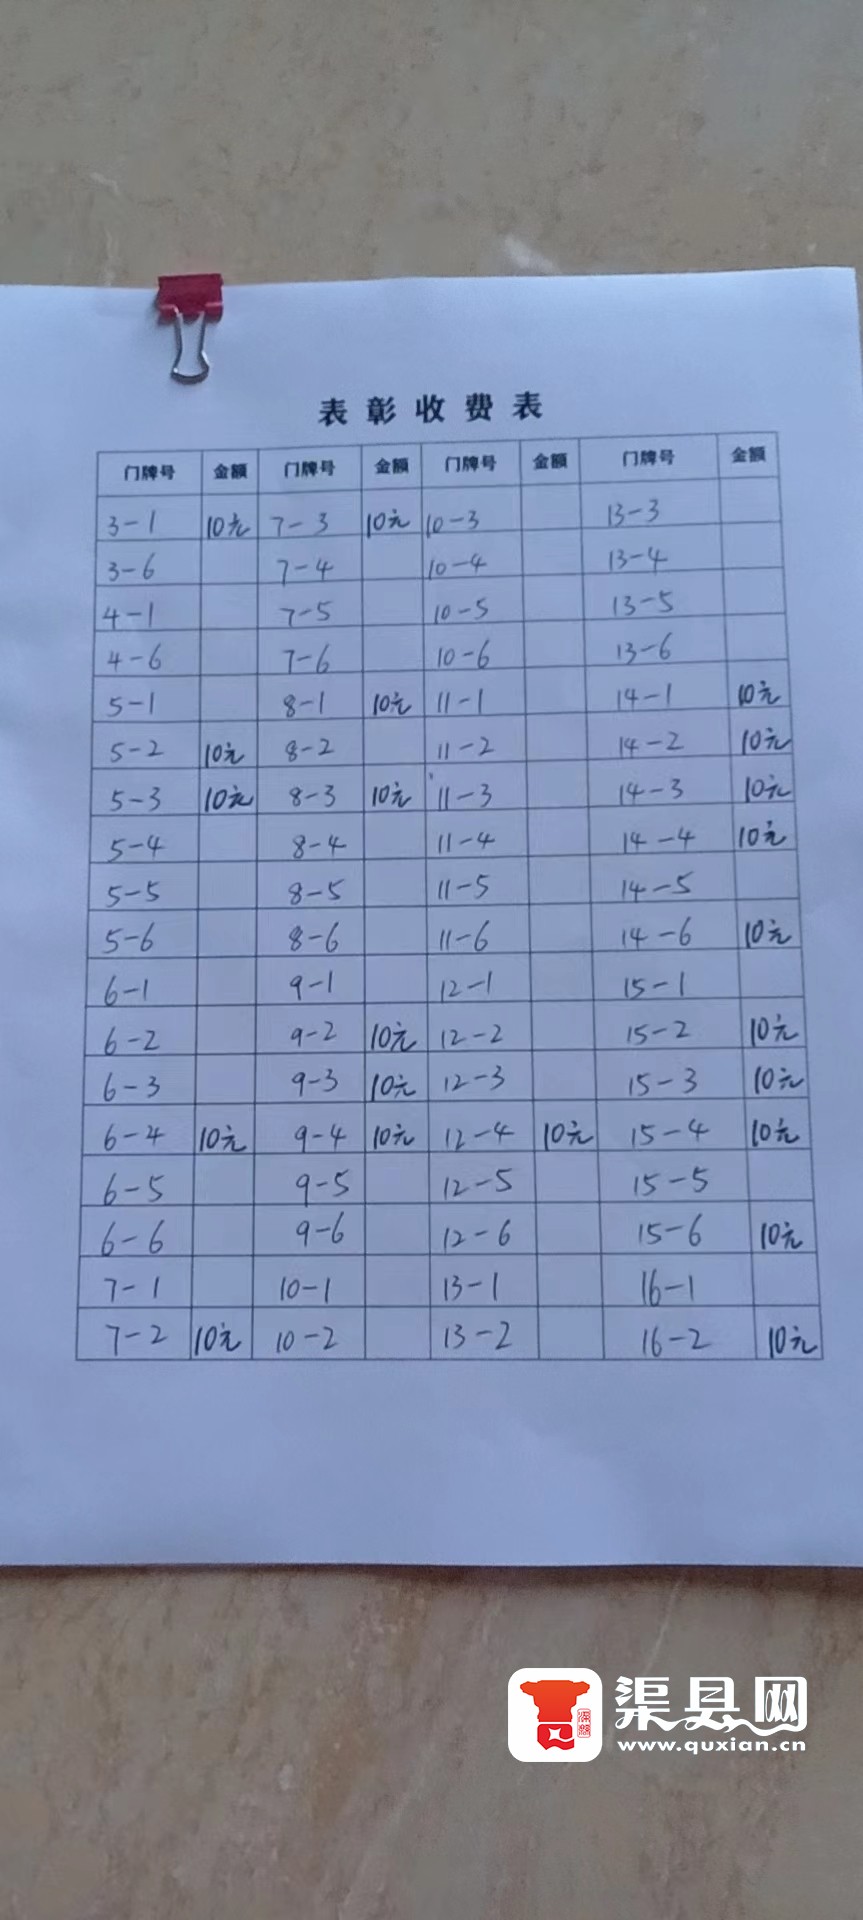 表彰收费表
门牌号 金额 门牌号 金额 门牌号 金额 门牌号 金额
3-1 10元 7-3 10元 10-3 13-3
3-6 7-4 10-4 13-4
4-1 7-5 10-5 13-5
4-6 7-6 10-6 13-6
5-1 8-1 10元 11-1 14-1 10元
5-2 10元 8-2 11-2 14-2 10元
5-3 10元 8-3 10元 11-3 14-3 10元
5-4 8-4 11-4 14-4 10元
5-5 8-5 11-5 14-5
5-6 8-6 11-6 14-6 10元
6-1 9-1 12-1 15-1
6-2 9-2 10元 12-2 15-2 10元
6-3 9-3 10元 12-3 15-3 10元
6-4 10元 9-4 10元 12-4 10元 15-4 10元
6-5 9-5 12-5 15-5
6-6 9-6 12-6 15-6 10元
7-1 10-1 13-1 16-1
7-2 10元 10-2 13-2 16-2 10元
渠县网
www.quxian.cn